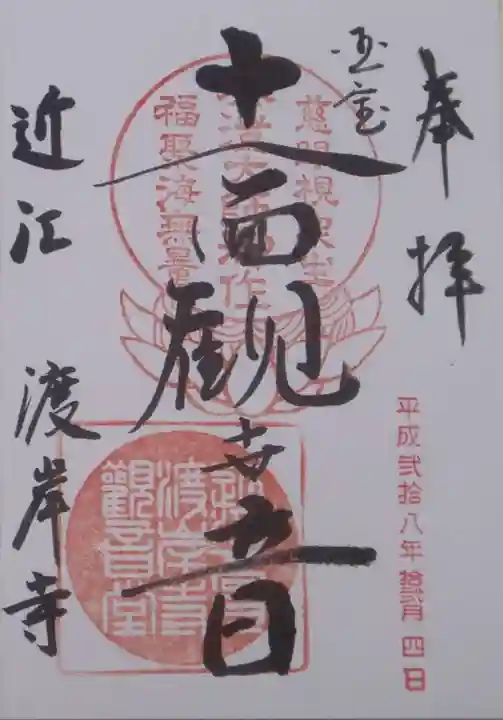 奉拝
平成弐拾八年拾弐月四日
国宝
慈眼視衆生
福聚海無量
十一面観世音
渡岸寺
觀音堂
近江 渡岸寺